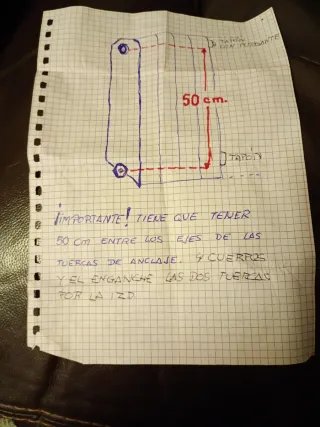 TAPÓN
CON PURGANTE
50 cm.
TAPÓN
¡IMPORTANTE! TIENE QUE TENER
50 cm ENTRE LOS EJES DE LAS
TUERCAS DE ANCLAJE. 4 CUERPOS
Y EL ENGANCHE LAS DOS TUERCAS
POR LA IZD